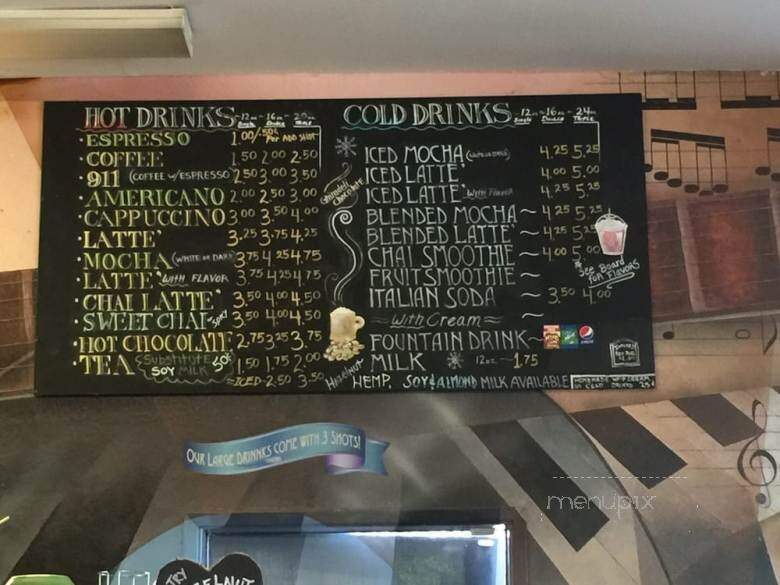 HOT DRINKS 12oz Single 16oz Double 20oz Triple
ESPRESSO 1.00/.50¢ Per ADD SHOT
COFFEE 1.50 2.00 2.50
911 (COFFEE W/ESPRESSO) 2.50 3.00 3.50
AMERICANO 2.00 2.50 3.00
CAPPUCCINO 3.00 3.50 4.00
LATTE' 3.25 3.75 4.25
MOCHA (WHITE OR DARK) 3.75 4.25 4.75
LATTE' With FLAVOR 3.75 4.25 4.75
CHAI LATTE' 3.50 4.00 4.50
SWEET CHAI 3.50 4.00 4.50
HOT CHOCOLATE 2.75 3.25 3.75
TEA 1.50 1.75 2.00
Substitute SOY MILK 50¢
ICED 2.50 3.50
Ghirardelli Chocolate
Hazelnut
COLD DRINKS 12oz Single 16oz Double 24oz Triple
ICED MOCHA 4.25 5.25
ICED LATTE' 4.00 5.00
ICED LATTE' With Flavor 4.25 5.25
BLENDED MOCHA 4.25 5.25
BLENDED LATTE' 4.25 5.25
CHAI SMOOTHIE 4.00 5.00
FRUIT SMOOTHIE
ITALIAN SODA 3.50 4.00
With Cream
See Board For FLAVORS
FOUNTAIN DRINK pepsi
MILK 12oz 1.75
HEMP, SOY & ALMOND MILK AVAILABLE
OUR LARGE DRINKS COME WITH 3 SHOTS!
menupix
TRY